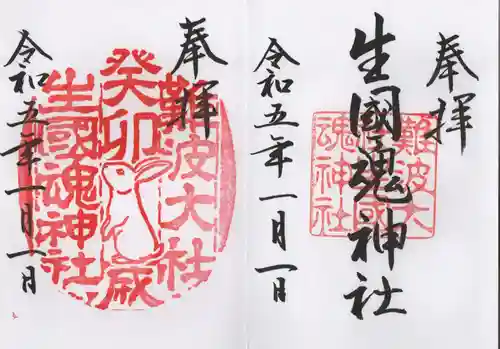 奉拝
生國魂神社
難波大社
生國魂神社
令和五年一月一日
奉拝
難波大社
癸卯歳
生國魂神社
令和五年一月一日